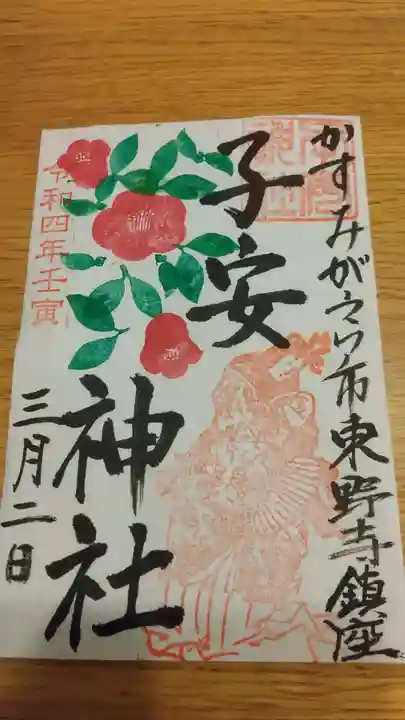 かすみがうら市東野寺鎮座
子安
神社
令和四年壬寅
三月二日